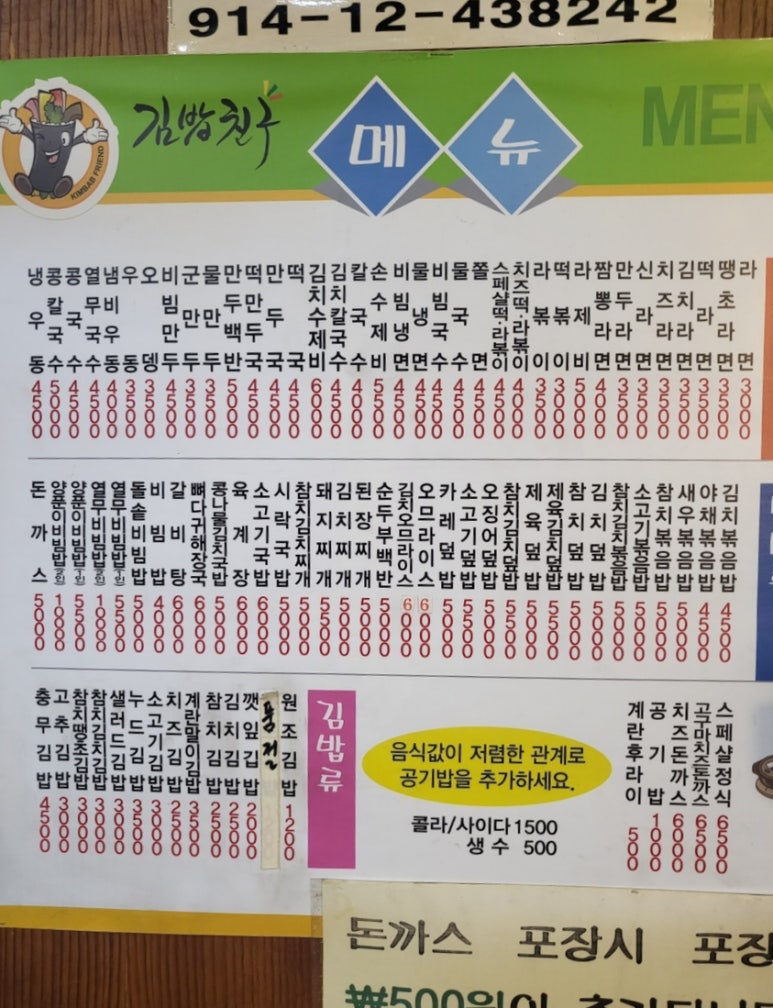 914-12-438242
KIMBAB FRIEND
김밥친구
메뉴
MEN
냉우동 4500
콩칼국수 5000
콩국수 4500
열무국수 4500
냄비우동 4000
우동 3500
오뎅 3500
비빔만두 4500
군만두 3500
물만두 3500
만두백반 5000
떡만두국 4500
만두국 4500
떡국 4500
김치수제비 6000
김치칼국수 4500
칼국수 4000
손수제비 5000
비빔냉면 4500
물냉면 4500
비빔국수 4500
물국수 4500
쫄면 4500
스페샬떡.라볶이 4500
치즈떡.라볶이 4000
라볶이 3500
떡볶이 3000
라제비 5000
짬뽕라면 4000
만두라면 3500
신라면 3500
치즈라면 3500
김치라면 3500
떡라면 3500
땡초라면 3500
라면 3000
돈까스 5000
양푼이비빔밥(2인) 10000
양푼이비빔밥(1인) 5500
열무비빔밥(2인) 10000
열무비빔밥(1인) 5500
돌솥비빔밥 5000
비빔밥 4000
갈비탕 6000
뼈다귀해장국 6000
콩나물김치국밥 5000
육계장 6000
소고기국밥 6000
시락국밥 5000
참치김치찌개 5500
돼지찌개 5500
김치찌개 5000
된장찌개 5000
순두부백반 5500
김치오므라이스 6000
오므라이스 6000
카레덮밥 5000
소고기덮밥 5500
오징어덮밥 5500
참치김치덮밥 5500
제육덮밥 5500
제육김치덮밥 5500
참치덮밥 5000
김치덮밥 5000
참치김치볶음밥 5500
소고기볶음밥 5000
참치볶음밥 5000
새우볶음밥 5000
야채볶음밥 4500
김치볶음밥 4500
충무김밥 4500
고추김밥 3000
참치땡초김밥 3000
참치김치김밥 3000
샐러드김밥 3000
누드김밥 3500
소고기김밥 3000
치즈김밥 2500
계란말이김밥 3500
참치김밥 2500
김치김밥 2500
깻잎김밥 2000
품절
원조김밥 1200
김밥류
음식값이 저렴한 관계로
공기밥을 추가하세요.
콜라/사이다 1500
생수 500
계란후라이 500
공기밥 1000
치즈돈까스 6000
고구마치즈돈까스 6500
스페샬정식 6500
돈까스 포장시 포장
₩500원이